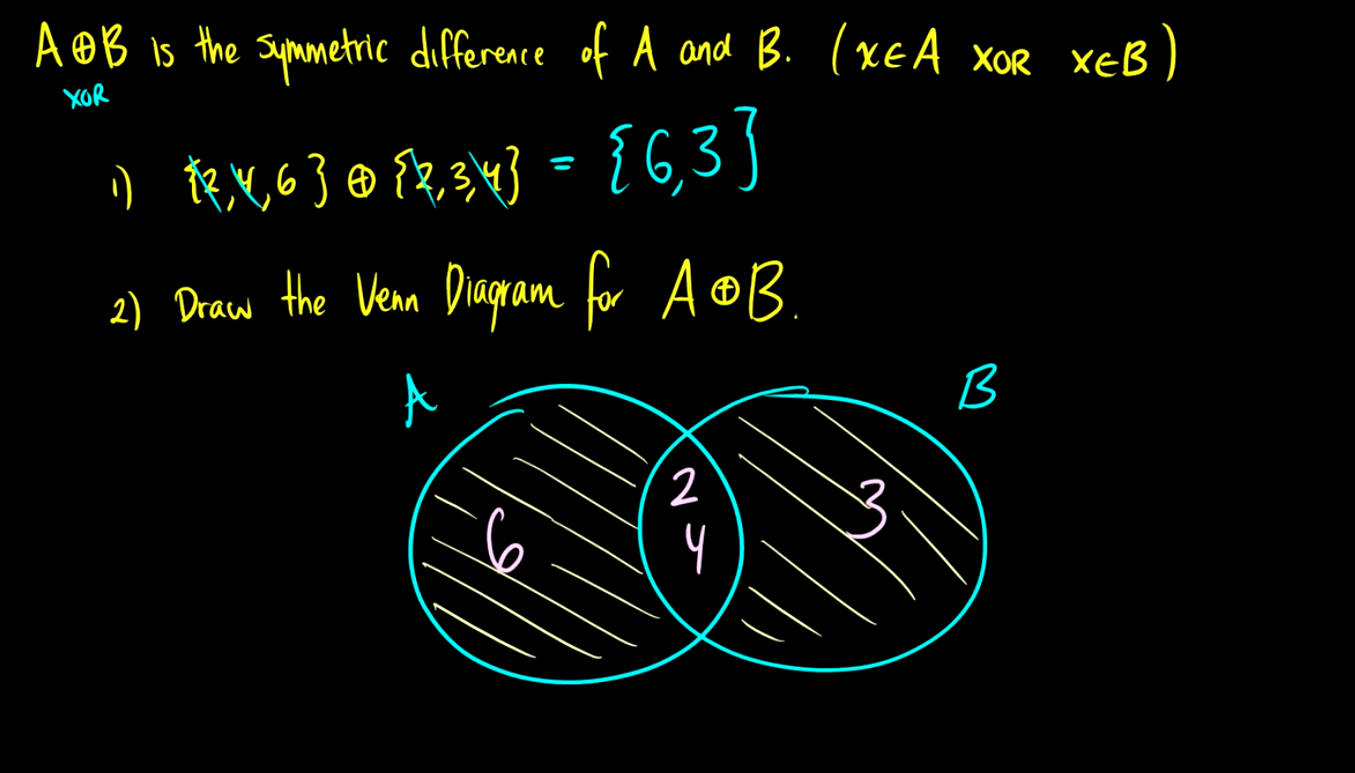 A ⊕ B is the symmetric difference of A and B. (x∈A XOR x∈B)
XOR
1) {2,4,6} ⊕ {2,3,4} = {6,3}
2) Draw the Venn Diagram for A ⊕ B.
A B
2
6 4 3